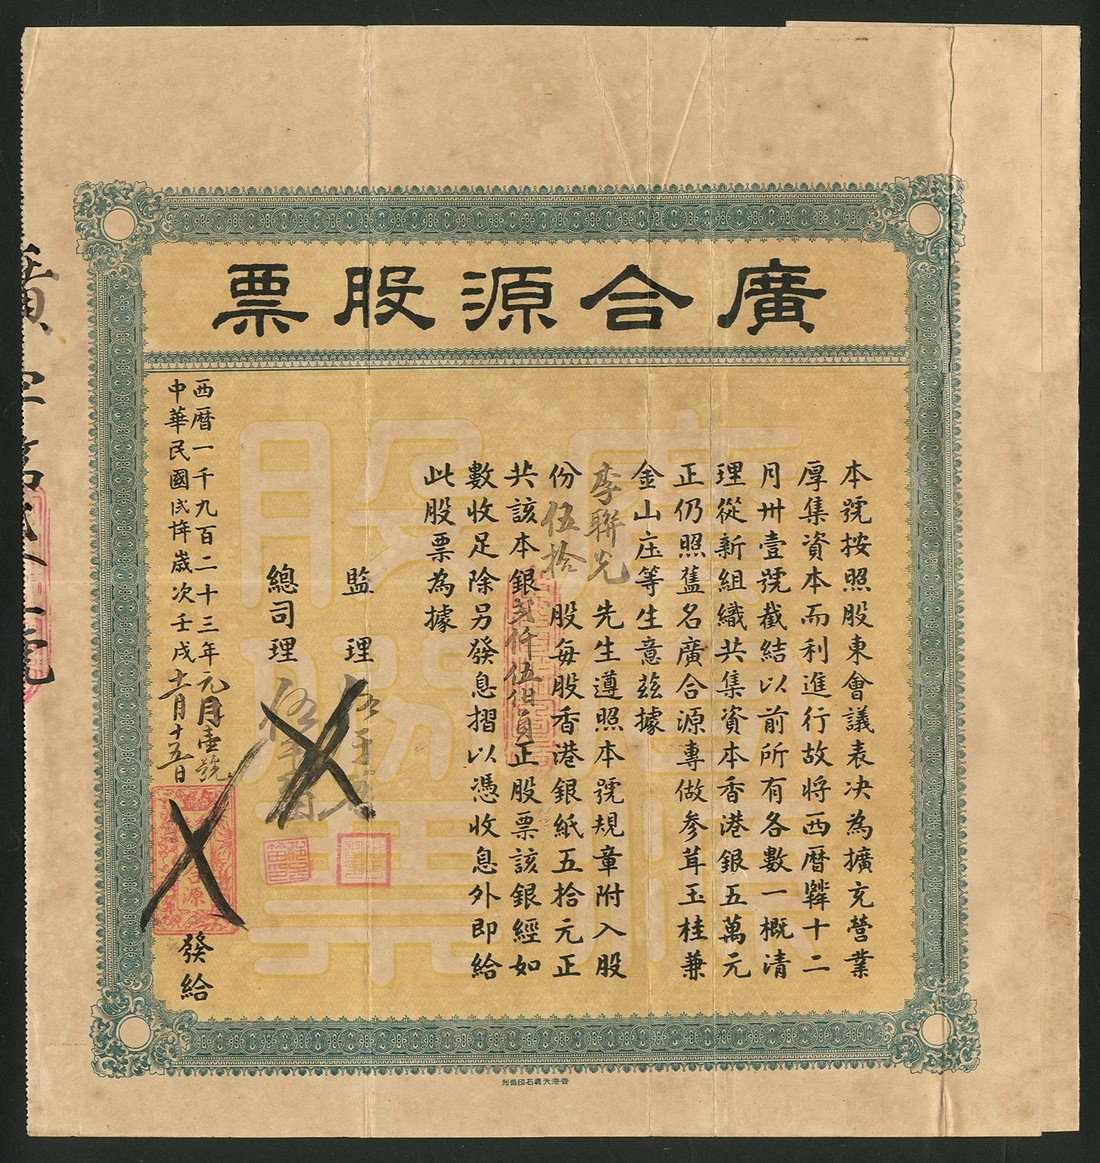 廣合源股票
本號按照股東會議表决為擴充營業
厚集資本而利進行故將西曆十二
月卅壹號截結以前所有各數一概清
理從新組織共集資本香港銀五萬元
正仍照舊名廣合源專做參茸玉桂兼
金山庄等生意茲據
李聯光先生遵照本號規章附入股
份伍拾股每股香港銀紙五拾元正
共該本銀弍仟伍佰員正股票該銀經如
數收足除另發息摺以憑收息外即給
此股票為據
監理
總司理
西曆一千九百二十三年元月壹號
中華民國歲次壬戌十一月十五日
發給
廣字第號